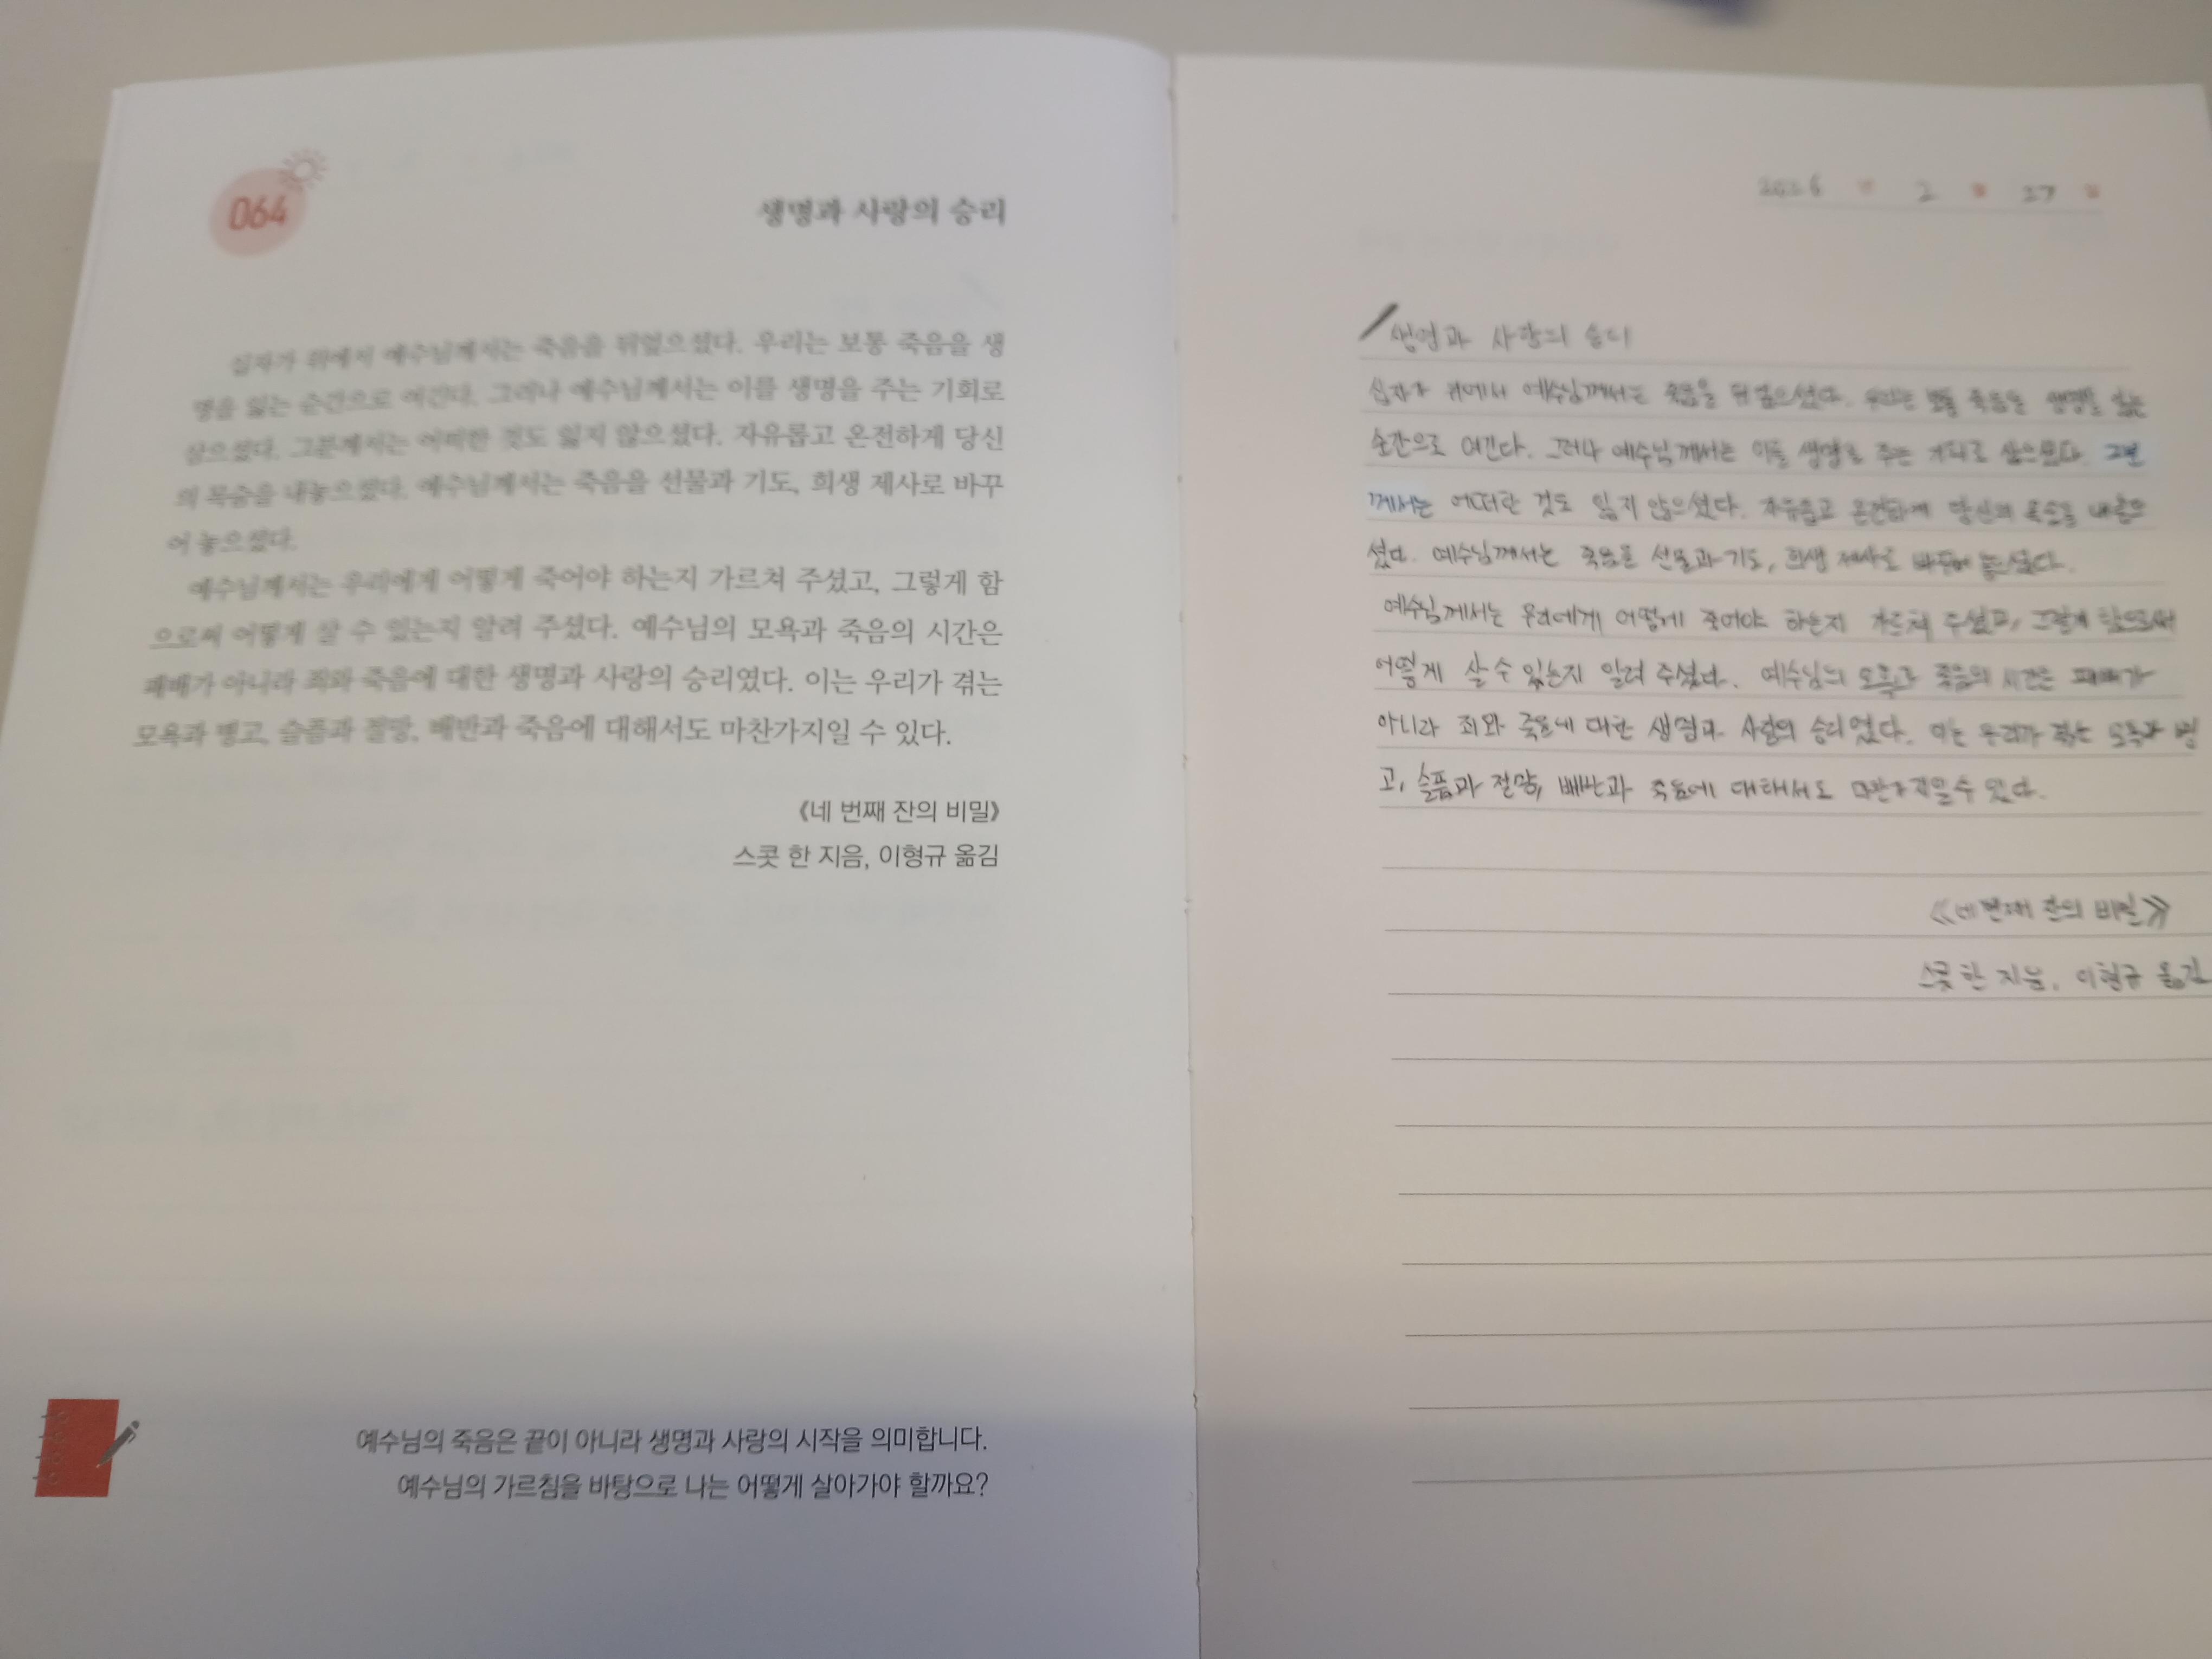 064
생명과 사랑의 승리
십자가 위에서 예수님께서는 죽음을 뒤엎으셨다. 우리는 보통 죽음을 생
명을 잃는 순간으로 여긴다. 그러나 예수님께서는 이를 생명을 주는 기회로
삼으셨다. 그분께서는 어떠한 것도 잃지 않으셨다. 자유롭고 온전하게 당신
의 목숨을 내놓으셨다. 예수님께서는 죽음을 선물과 기도, 희생 제사로 바꾸
어 놓으셨다.
예수님께서는 우리에게 어떻게 죽어야 하는지 가르쳐 주셨고, 그렇게 함
으로써 어떻게 살 수 있는지 알려 주셨다. 예수님의 모욕과 죽음의 시간은
패배가 아니라 죄와 죽음에 대한 생명과 사랑의 승리였다. 이는 우리가 겪는
모욕과 병고, 슬픔과 절망, 배반과 죽음에 대해서도 마찬가지일 수 있다.
《네 번째 잔의 비밀》
스콧 한 지음, 이형규 옮김
예수님의 죽음은 끝이 아니라 생명과 사랑의 시작을 의미합니다.
예수님의 가르침을 바탕으로 나는 어떻게 살아가야 할까요?
2026 년 2 월 27 일
생명과 사랑의 승리
십자가 위에서 예수님께서는 죽음을 뒤엎으셨다. 우리는 보통 죽음을 생명을 잃는
순간으로 여긴다. 그러나 예수님께서는 이를 생명을 주는 기회로 삼으셨다. 그분
께서는 어떠한 것도 잃지 않으셨다. 자유롭고 온전하게 당신의 목숨을 내놓으
셨다. 예수님께서는 죽음을 선물과 기도, 희생 제사로 바꾸어 놓으셨다.
예수님께서는 우리에게 어떻게 죽어야 하는지 가르쳐 주셨고, 그렇게 함으로써
어떻게 살 수 있는지 알려 주셨다. 예수님의 모욕과 죽음의 시간은 패배가
아니라 죄와 죽음에 대한 생명과 사랑의 승리였다. 이는 우리가 겪는 모욕과 병
고, 슬픔과 절망, 배반과 죽음에 대해서도 마찬가지일 수 있다.
《네 번째 잔의 비밀》
스콧 한 지음, 이형규 옮김